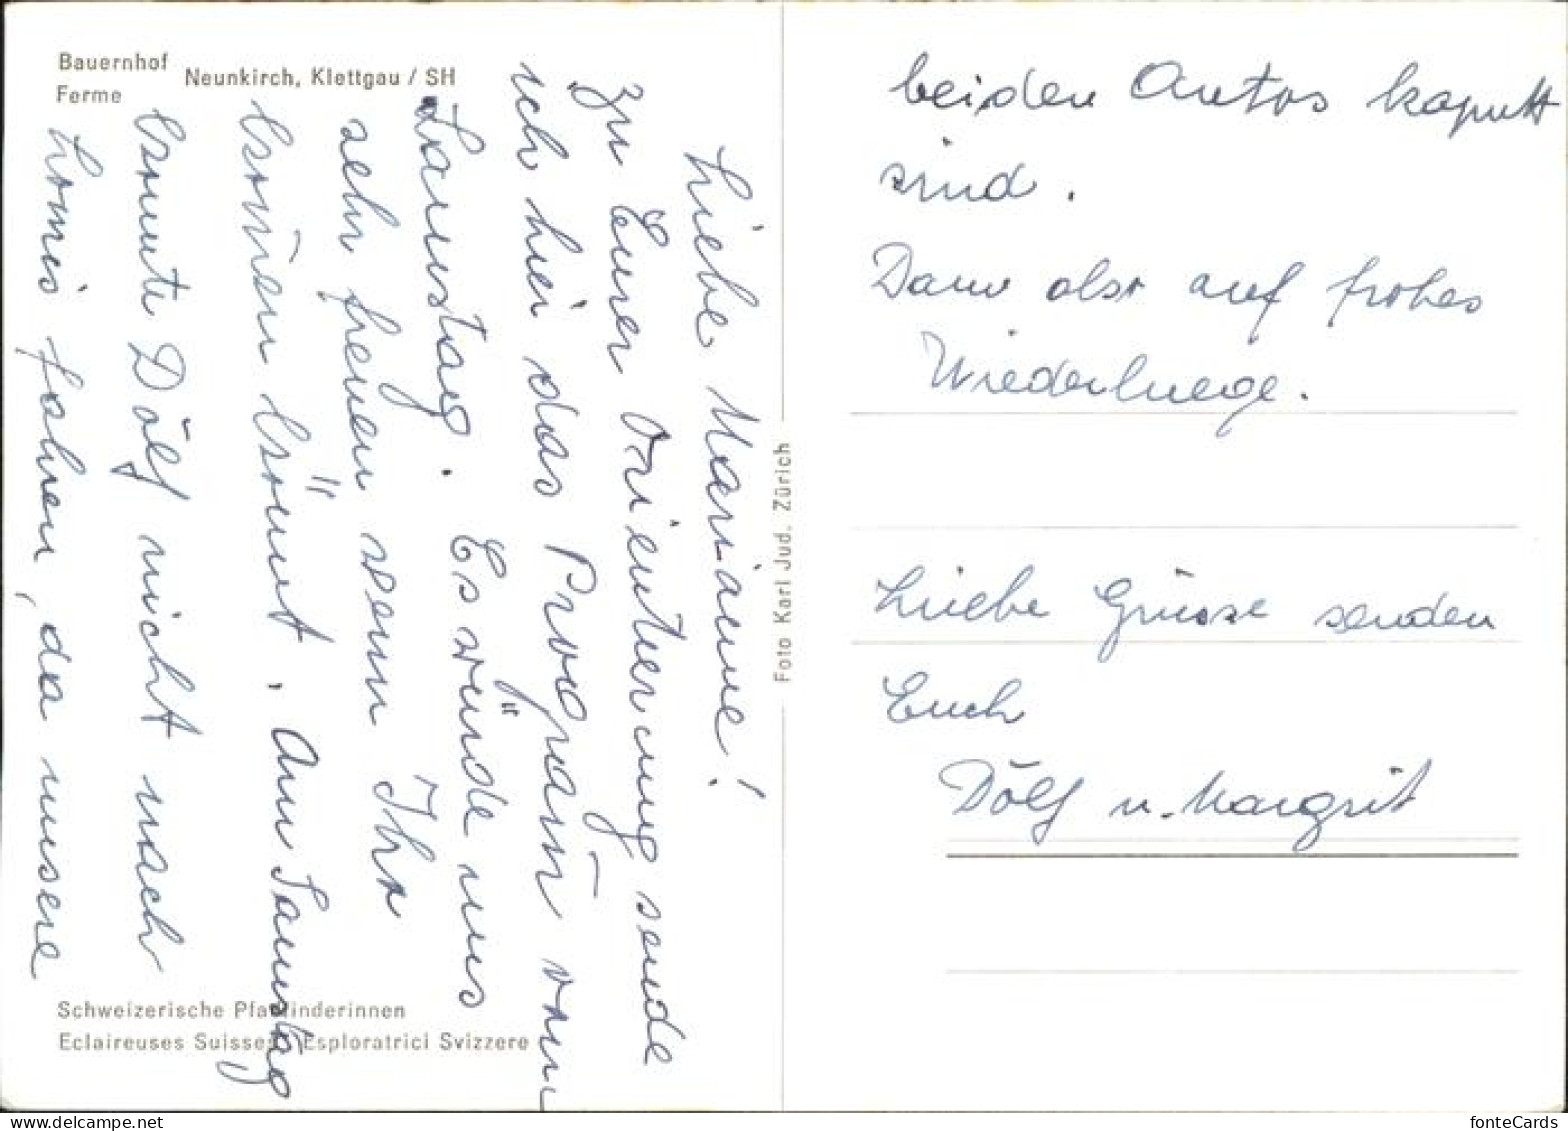 Bauernhof
Ferme
Neunkirch, Klettgau / SH
Liebe Marianne!
Zu Eurer Orientierung sende
ich hier das Program̄ vom
Samstag. Es würde uns
sehr freuen wenn Ihr
kom̄en könnt. Am Samstag
konnte Dölf nicht nach
Lomis fahren, da unsere
Schweizerische Pfadfinderinnen
Eclaireuses Suisses / Esploratrici Svizzere
Foto Karl Jud. Zürich
beiden Autos kaputt
sind.
Dann also auf frohes
Wiederluege.
Liebe Grüsse senden
Euch
Dölf u. Margrit
fonteCards